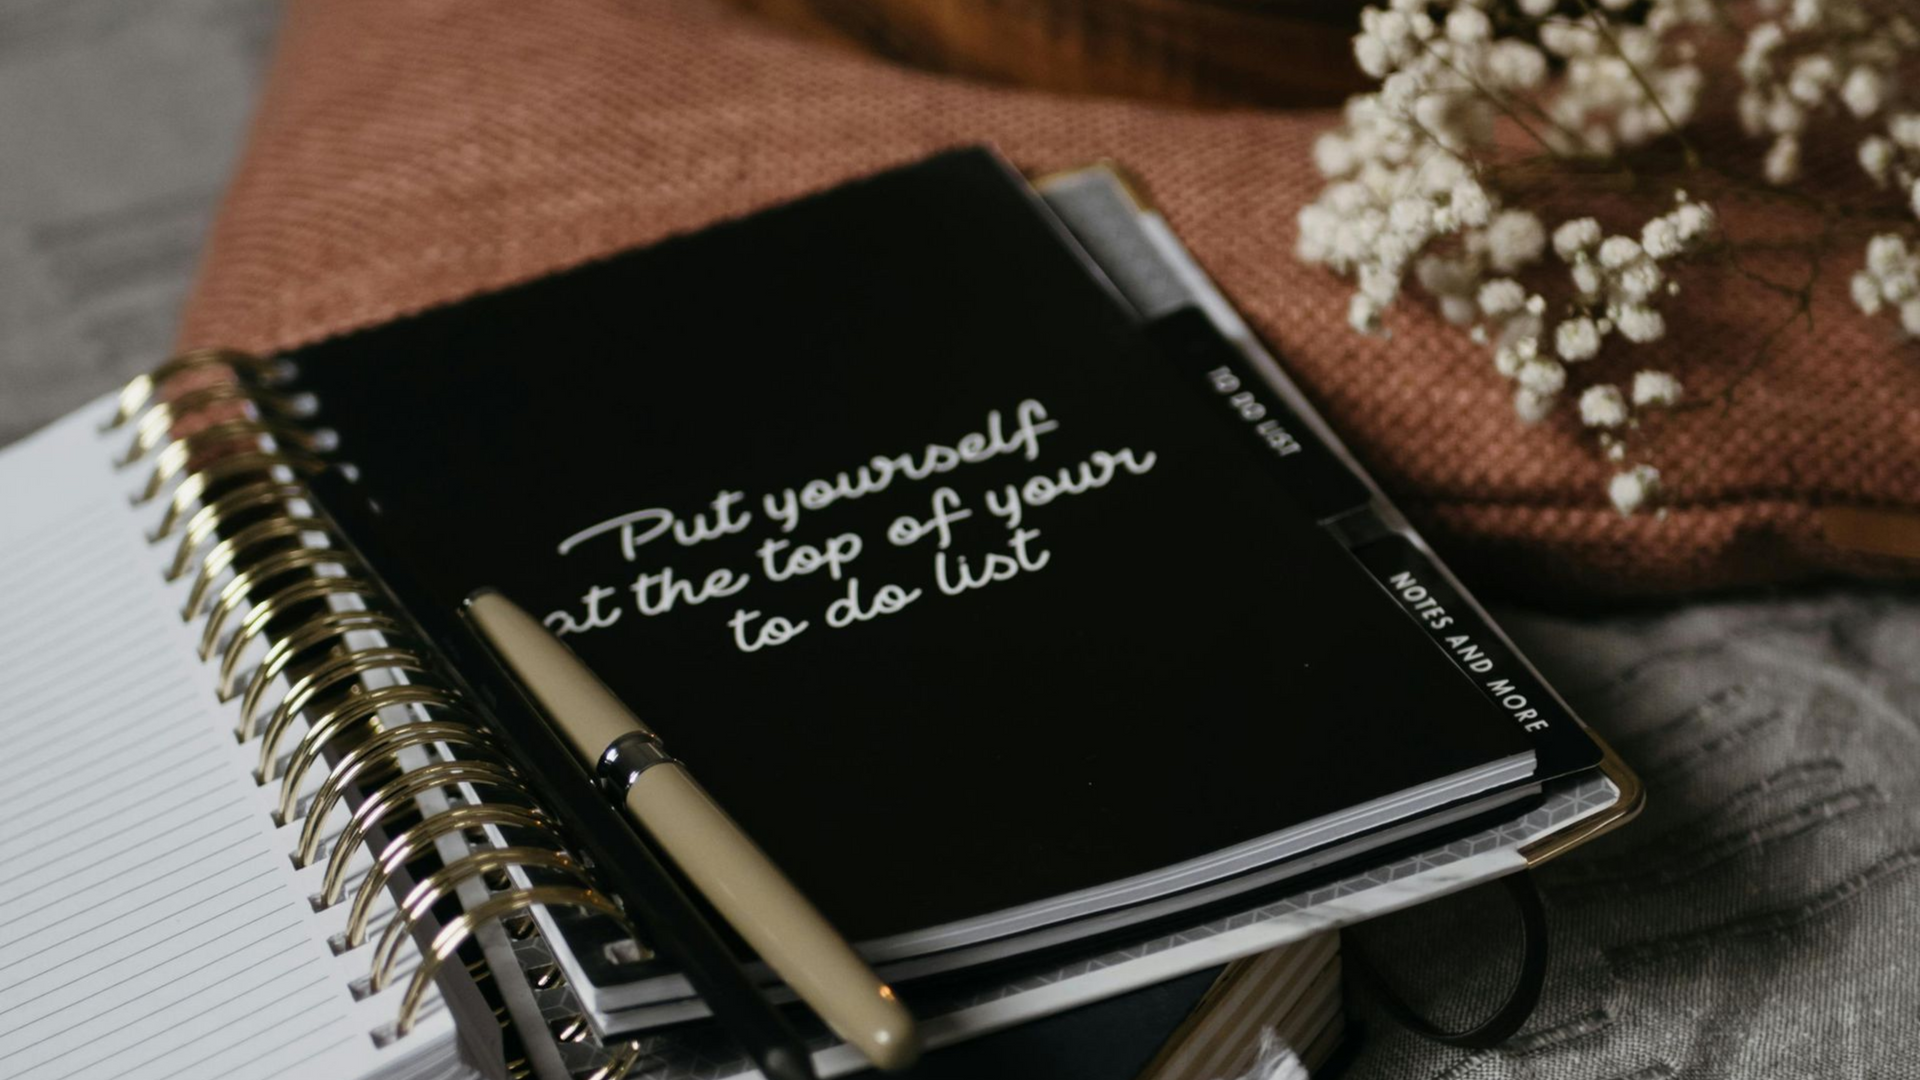 Put yourself
at the top of your
to do list
TO DO LIST
NOTES AND MORE